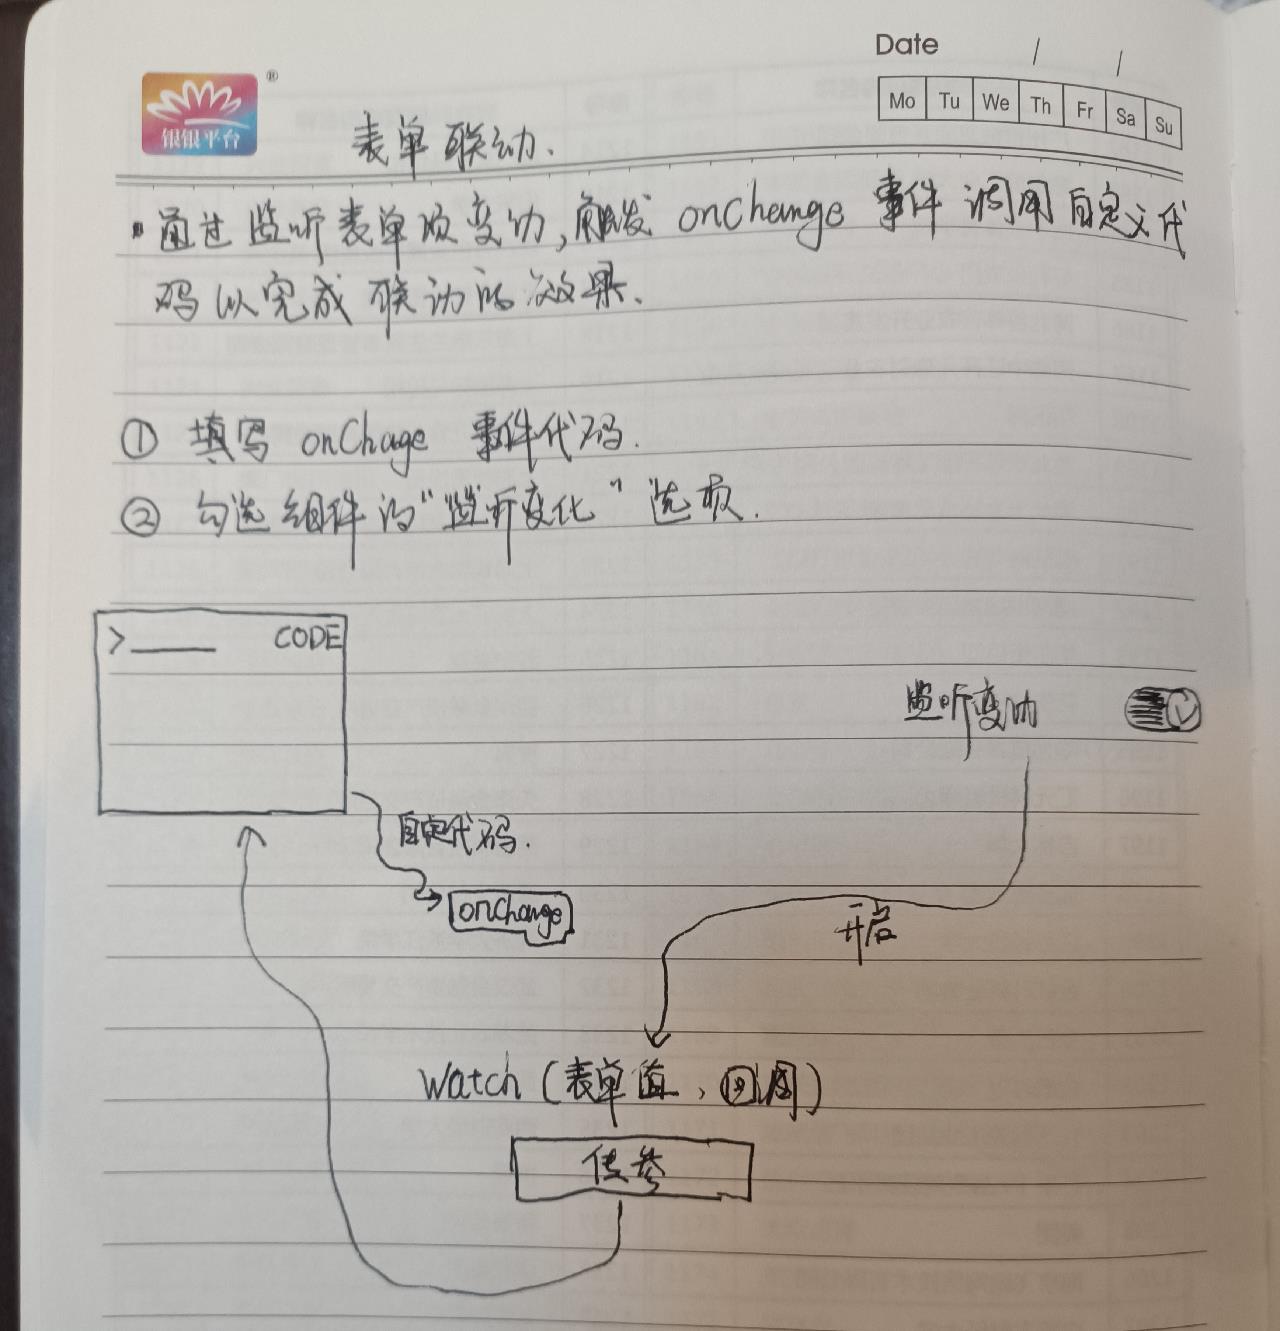 Date / /
Mo Tu We Th Fr Sa Su
®
银银平台
表单联动.
通过监听表单项变动,触发 onChange 事件 调用自定义代
码以完成联动的效果.
① 填写 onChage 事件代码.
② 勾选组件的"监听变化"选项.
>____ CODE
监听变动
自定代码.
onChange
开启
Watch (表单值、回调)
传参